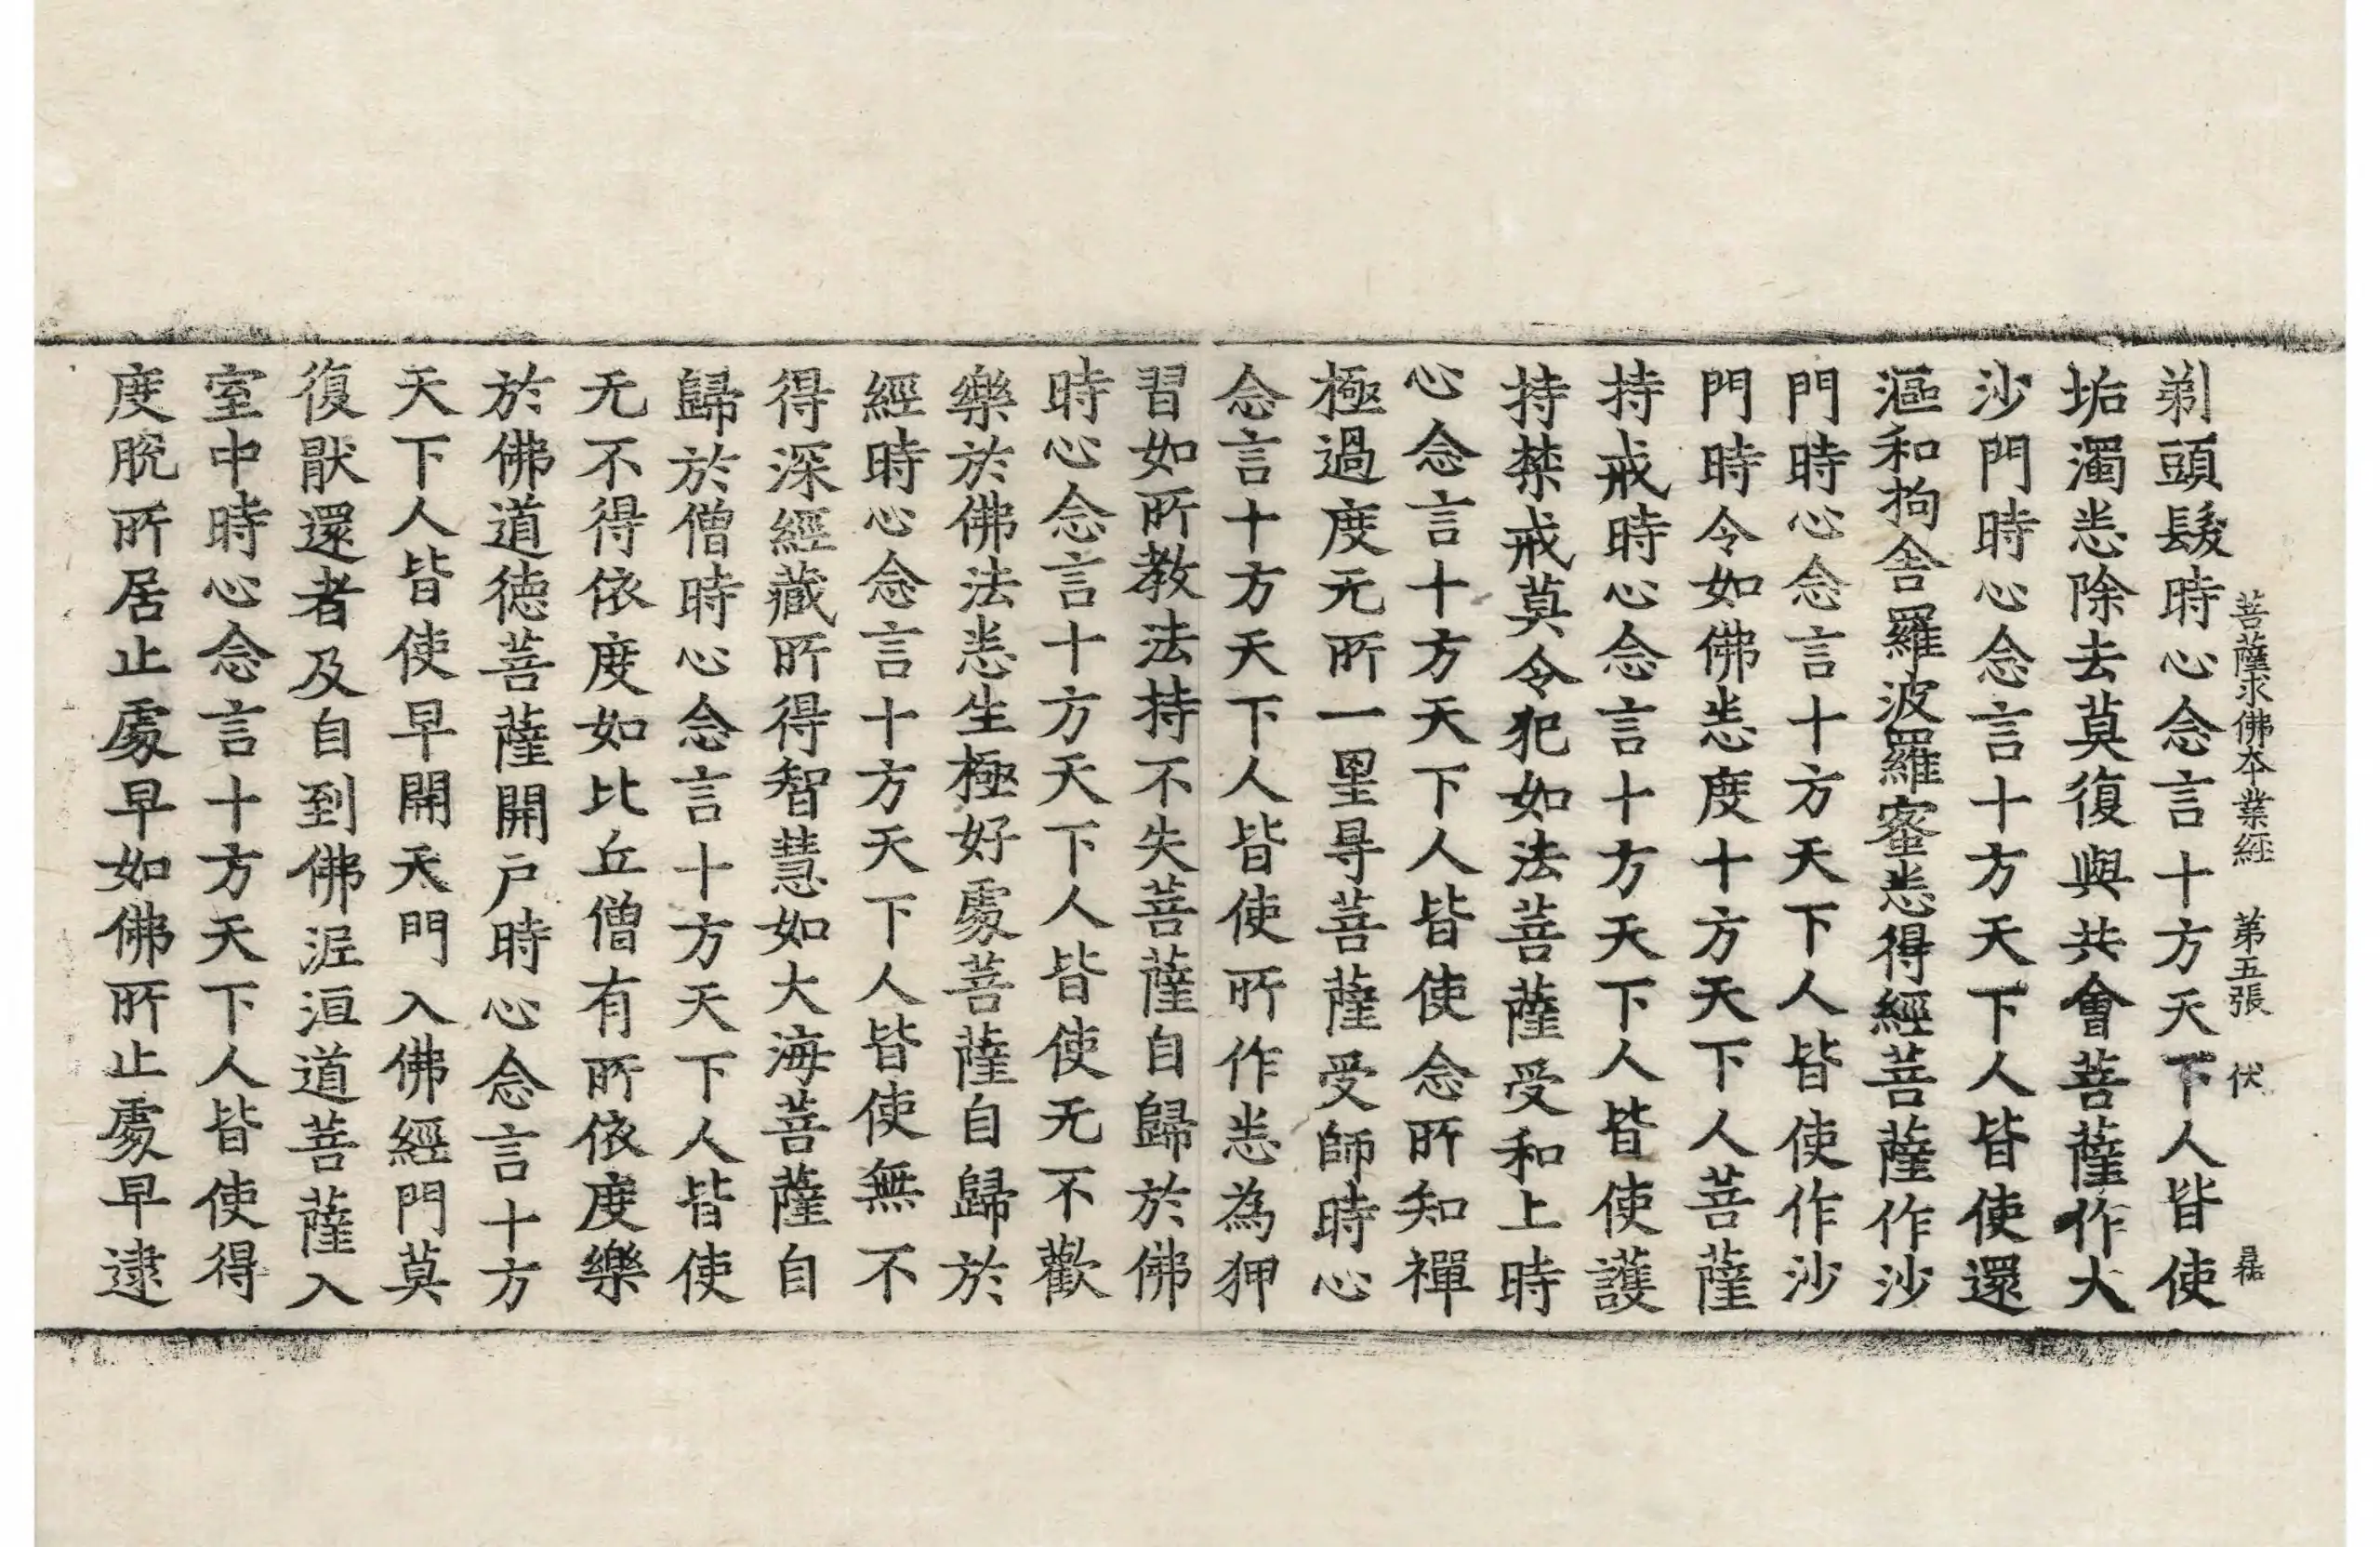 菩薩求佛本業經 第五張 伏
剃頭髮時心念言十方天下人皆使
垢濁恙除去莫復與共會菩薩作大
沙門時心念言十方天下人皆使還
漚和拘舍羅波羅蜜恙得經菩薩作沙
門時心念言十方天下人皆使作沙
門時令如佛恙度十方天下人菩薩
持戒時心念言十方天下人皆使護
持禁戒莫令犯如法菩薩受和上時
心念言十方天下人皆使念所知禪
極過度无所一罣㝵菩薩受師時心
念言十方天下人皆使所作恙為狎
習如所教法持不失菩薩自歸於佛
時心念言十方天下人皆使无不歡
樂於佛法恙生極好處菩薩自歸於
經時心念言十方天下人皆使無不
得深經藏所得智慧如大海菩薩自
歸於僧時心念言十方天下人皆使
无不得依度如比丘僧有所依度樂
於佛道德菩薩開戶時心念言十方
天下人皆使早開天門入佛經門莫
復猒還者及自到佛泥洹道菩薩入
室中時心念言十方天下人皆使得
度脫所居止處早如佛所止處早逮